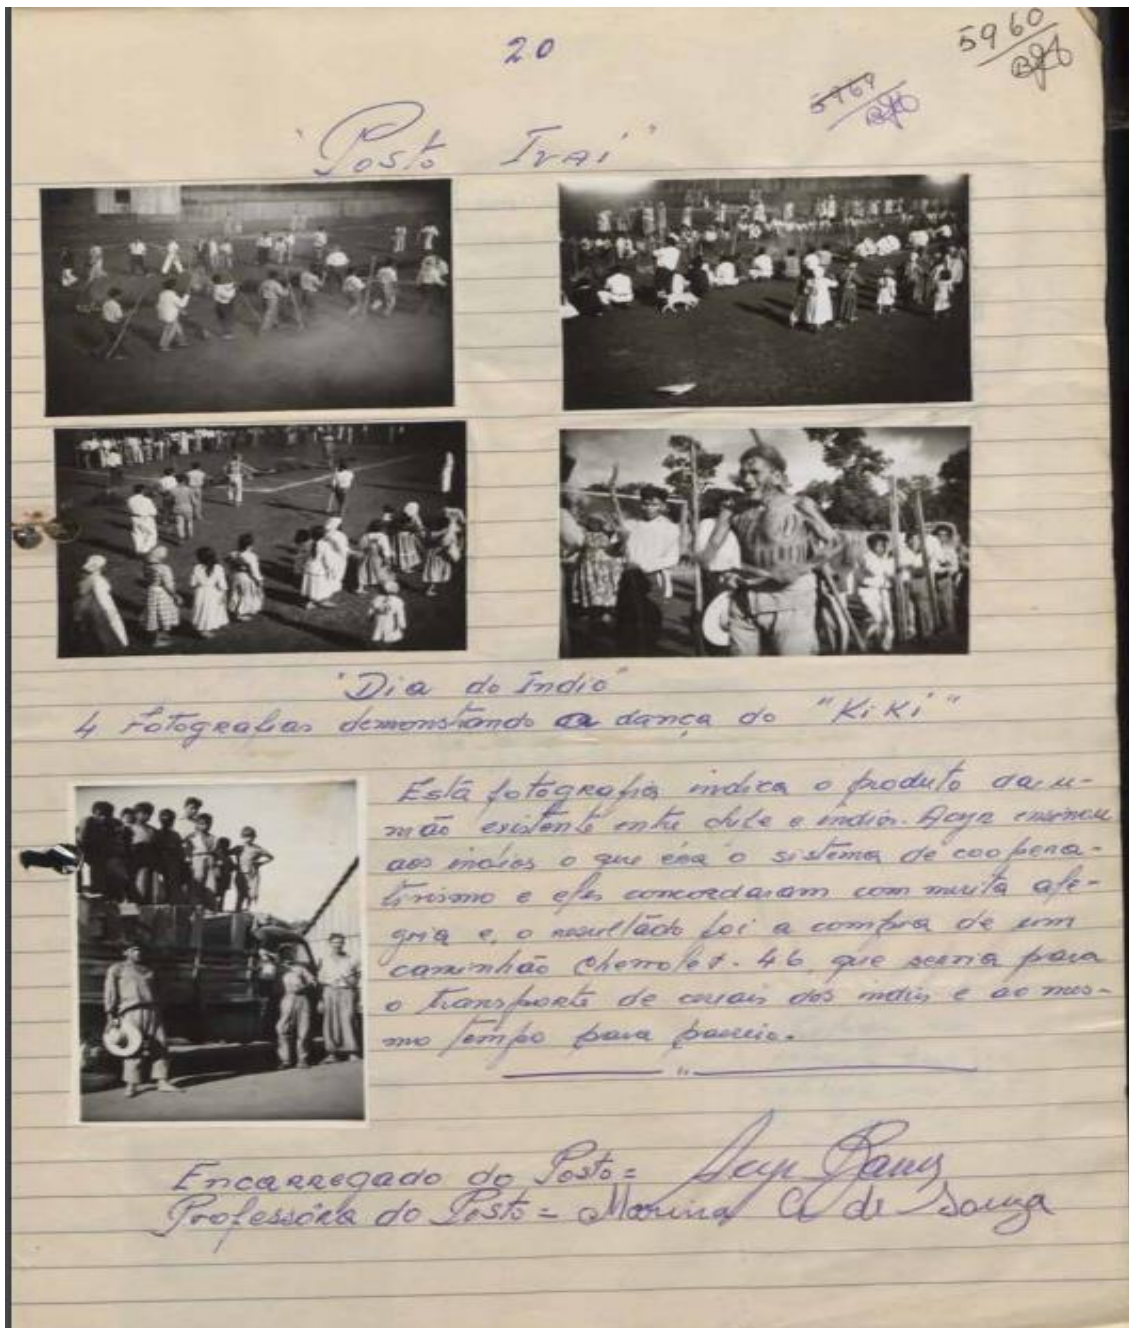 20
5960
5969
"Posto Ivaí"
"Dia do Índio"
4 Fotografias demonstrando a dança do "Kiki"
Está fotografia indica o produto da u-
nião existente entre chefe e indios. Acyr ensinou
aos indios o que éra o sistema de coopera-
tivismo e eles concordaram com muita ale-
gria e, o resultado foi a compra de um
caminhão Chevrolet-46, que servia para
o transporte de cereais dos indios e ao mes-
mo tempo para passeio.
Encarregado do Posto = Acyr Barros
Professôra do Posto = Marina C de Souza